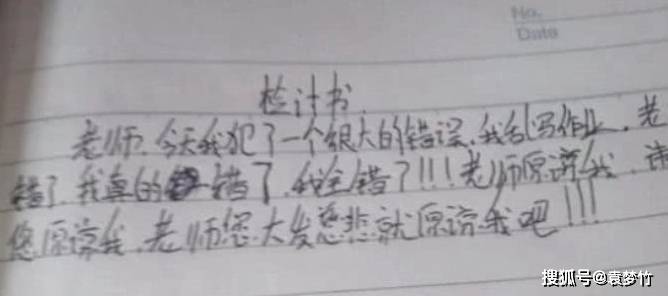 No.
Date
检讨书
老师,今天我犯了一个很大的错误,我乱写作业,老
错了,我真的错了,我全错了!!!老师原谅我,请
您原谅我,老师您大发慈悲就原谅我吧!!!
搜狐号@袁梦竹